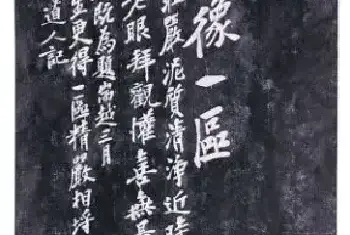 像一區
嚴泥質清淨近時
眼拜觀懽喜無
既為題耑越三月
更得一區精嚴相埒
道人記